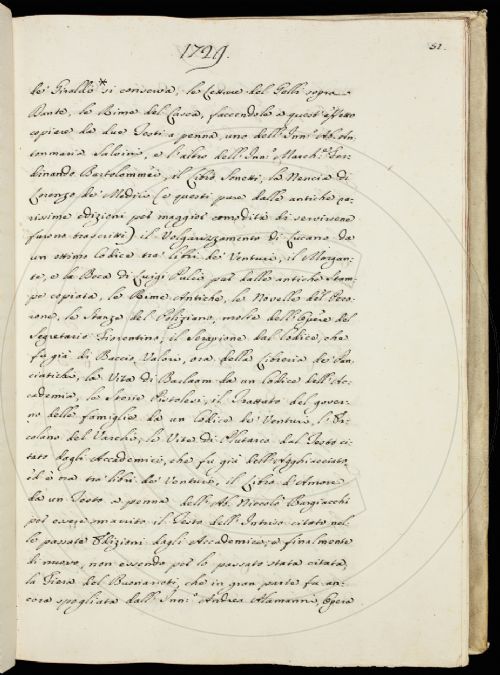 1729.
51.
de' Giraldi* si conserva, le Letture del Gelli sopra
Dante, le Rime del Casa, facendole a quest'effetto
copiare da due Testi a penna, uno dell'Inn.º Ab. An-
tommaria Salvini, e l'altro dell'Inn.º March.e Fer-
dinando Bartolommei, il Libro Sonetti, la Nencia di
Lorenzo de' Medici (e questi pure dalle antiche ra-
rissime edizioni per maggior comodità di servirsene
furono trascritti) il Volgarizzamento di Lucano da
un ottimo Codice tra' libri de' Venturi, il Morgan-
te, e la Beca di Luigi Pulci pur dalle antiche Stam-
pe copiata, le Rime Antiche, le Novelle del Peco-
rone, le Stanze del Poliziano, molte dell'Opere del
Segretario Fiorentino, il Serapione dal Codice, che
fu già di Baccio Valori, ora della Libreria de' Pan-
ciatichi, la Vita di Barlaam da un Codice dell'Ac-
cademia, le Storie Pistolesi, il Trattato del gover-
no delle famiglie da un Codice de' Venturi, l'Er-
colano del Varchi, le Vite di Plutarco dal Testo ci-
tato dagli Accademici, che fu già dell'Agghiacciato,
ed è ora tra' libri de' Venturi, il Libro d'Amore
da un Testo a penna dell'Ab. Niccolò Bargiacchi
per essere smarrito il Testo dell'Intriso citato nel-
le passate Edizioni dagli Accademici; e finalmente
di nuovo, non essendo per lo passato stata citata,
la Fiera del Buonarroti, che in gran parte fu an-
cora spogliata dall'Inn.º Andrea Alamanni, Opera